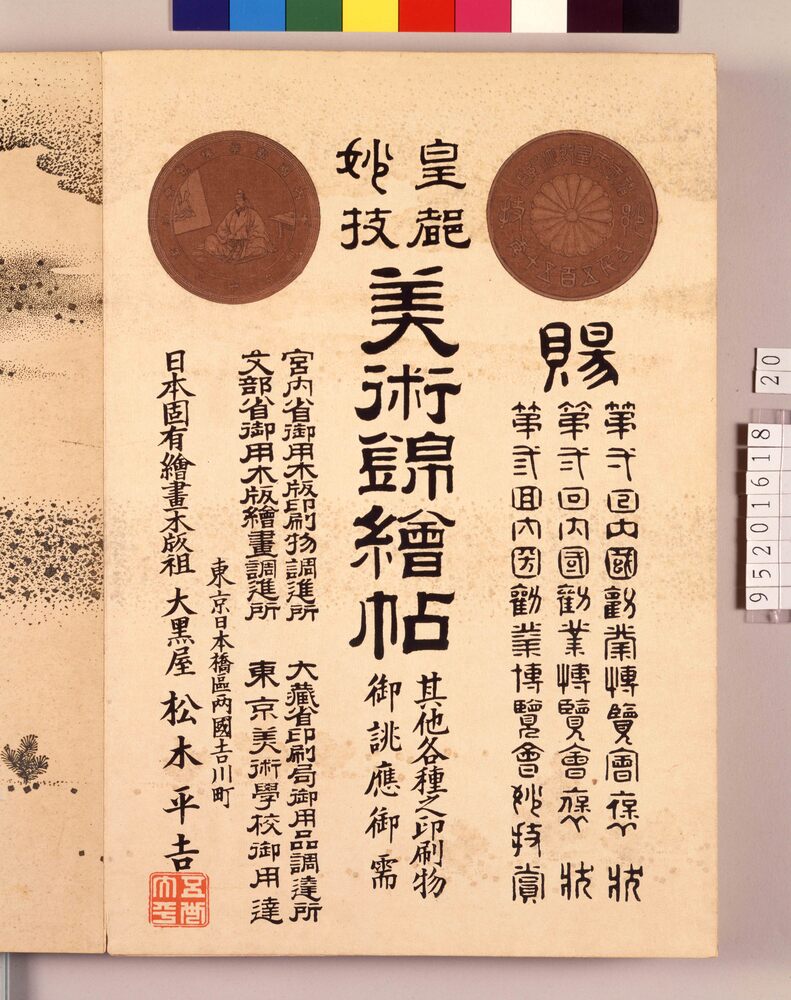 賜
第弐回内國勧業博覧會褒状
第弐回内國勧業博覧會褒状
第弐回内国勧業博覧會妙技賞
皇都
妙技
美術錦繪帖
其他各種之印刷物
御誂應御需
宮内省御用木版印刷物調進所
大藏省印刷局御用品調達所
文部省御用木版繪畫調進所
東京美術學校御用達
東京日本橋區両國吉川町
日本固有繪畫木版祖 大黒屋 松木平吉
20
95201618